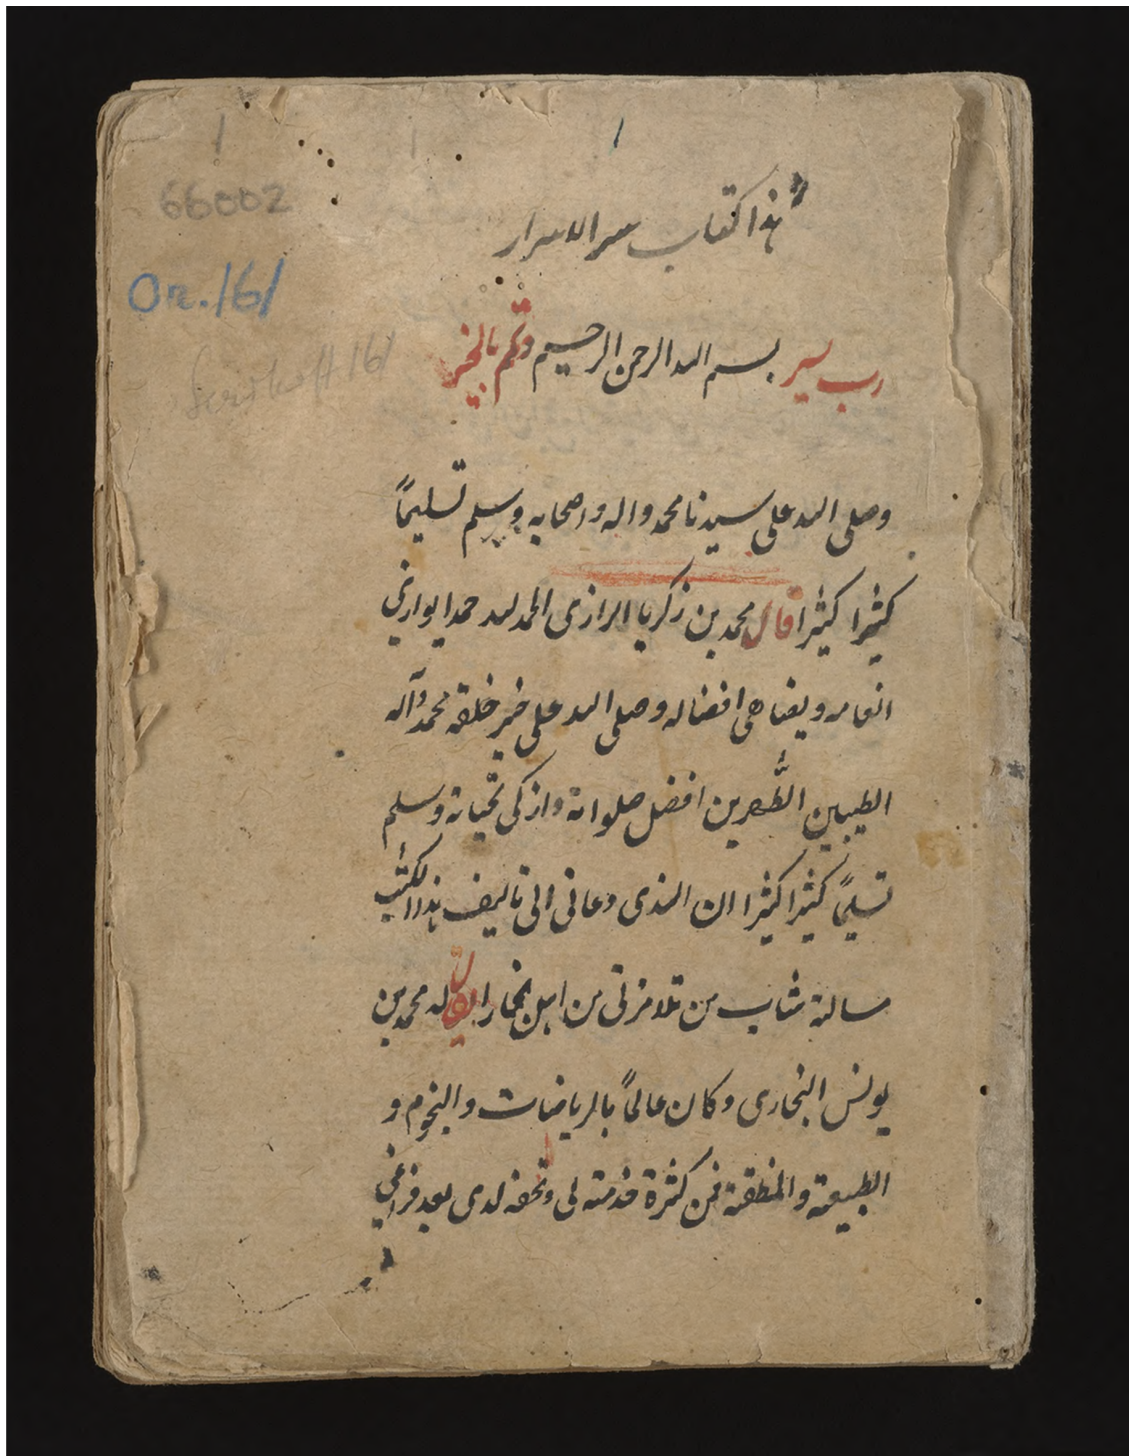 1
66002
هذا كتاب سر الاسرار
Or. 161
رب يسر بسم الله الرحمن الرحيم وتمم بالخير
161
وصلى الله على سيدنا محمد واله واصحابه وسلم تسليماً
كثيرا كثيرا قال محمد بن زكريا الرازى الحمد لله حمدا يوازي
انعامه ويضاهى افضاله وصلى الله على خير خلقه محمد وآله
الطيبين الطَّهرين افضل صلواته وازكى تحياته وسلم
تسليماً كثيرا كثيرا ان الذى دعانى الى تاليف هذا الكتب
مسالة شاب من تلامزتى من اهل بخارا يقال له محمد بن
يونس البخارى وكان عالماً بالرياضات والنجوم و
الطبيعة والمنطقة فمن كثرة خدمته لى وتحفه لدى بعد فراغي